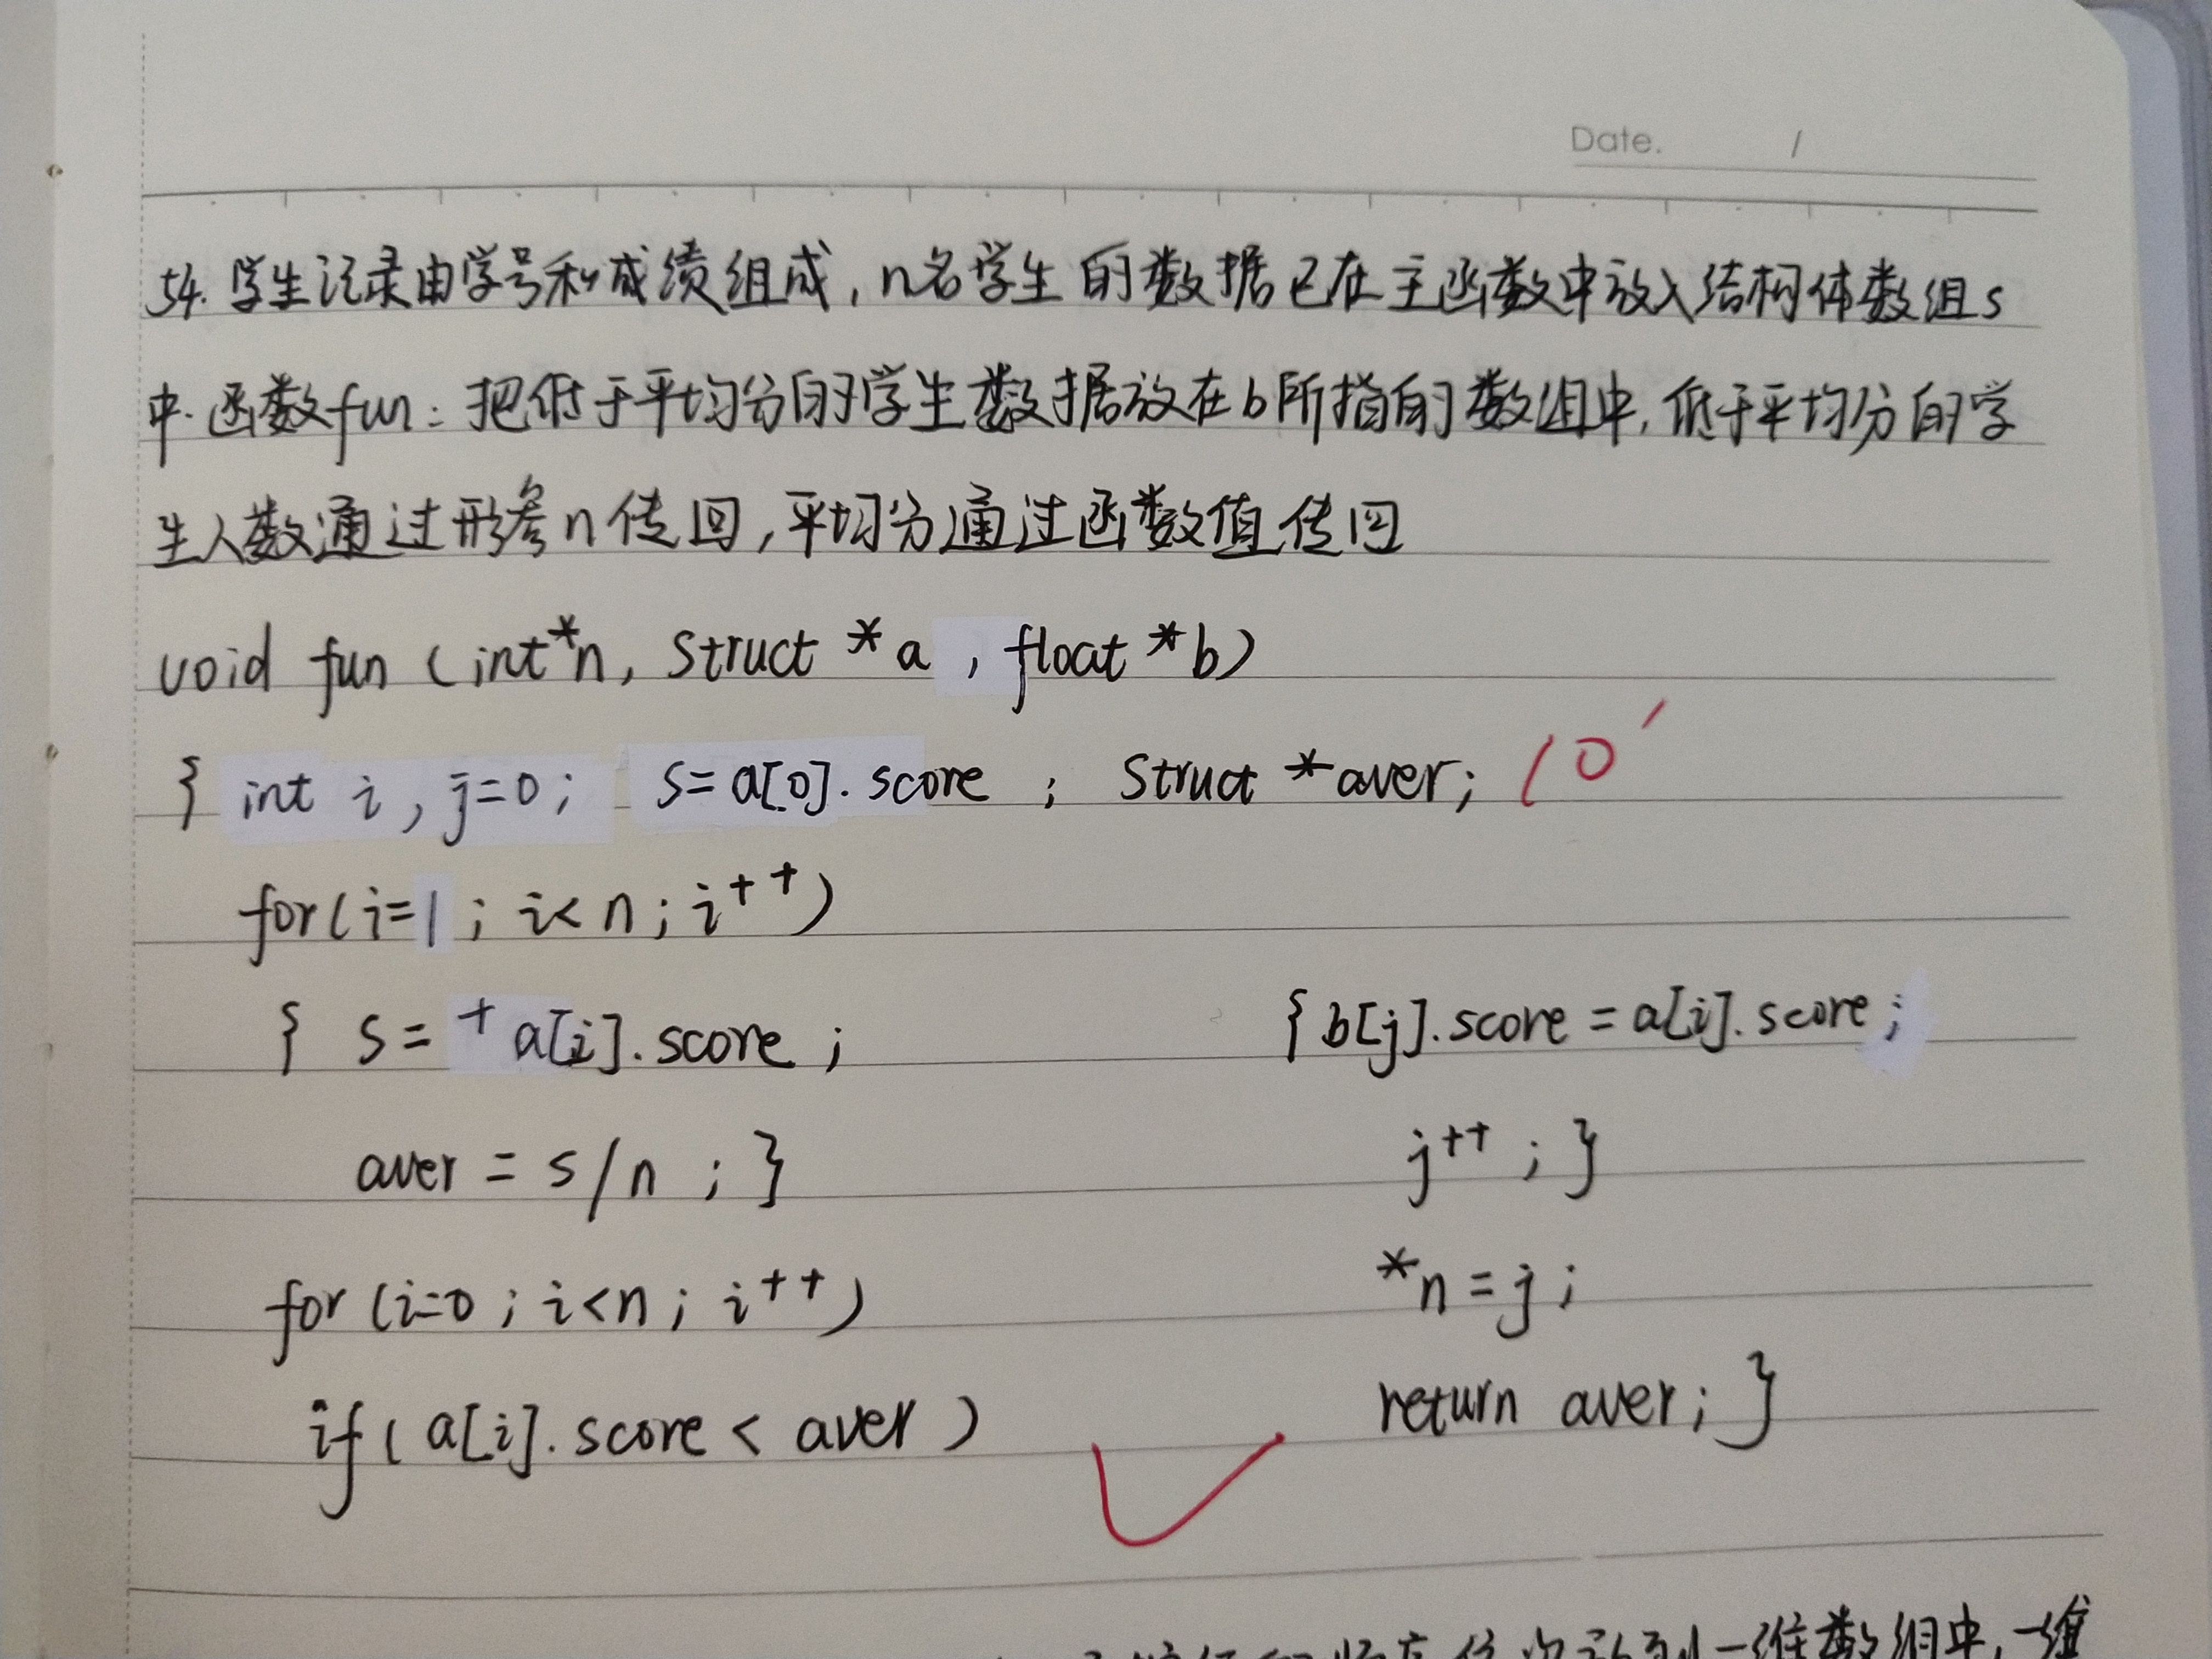 Date. /
54. 学生记录由学号和成绩组成，n名学生的数据已在主函数中放入结构体数组s
中. 函数fun：把低于平均分的学生数据放在b所指的数组中，低于平均分的学
生人数通过形参n传回，平均分通过函数值传回
void fun (int*n, struct *a , float *b)
{ int i, j=0; s=a[0].score ; struct *aver; 10'
for(i=1; i<n; i++)
{ s= +a[i].score ;
aver = s/n ; }
for (i=0; i<n; i++)
if( a[i].score < aver )
{ b[j].score = a[i].score;
j++ ; }
*n = j;
return aver; }
一维数组中，一维